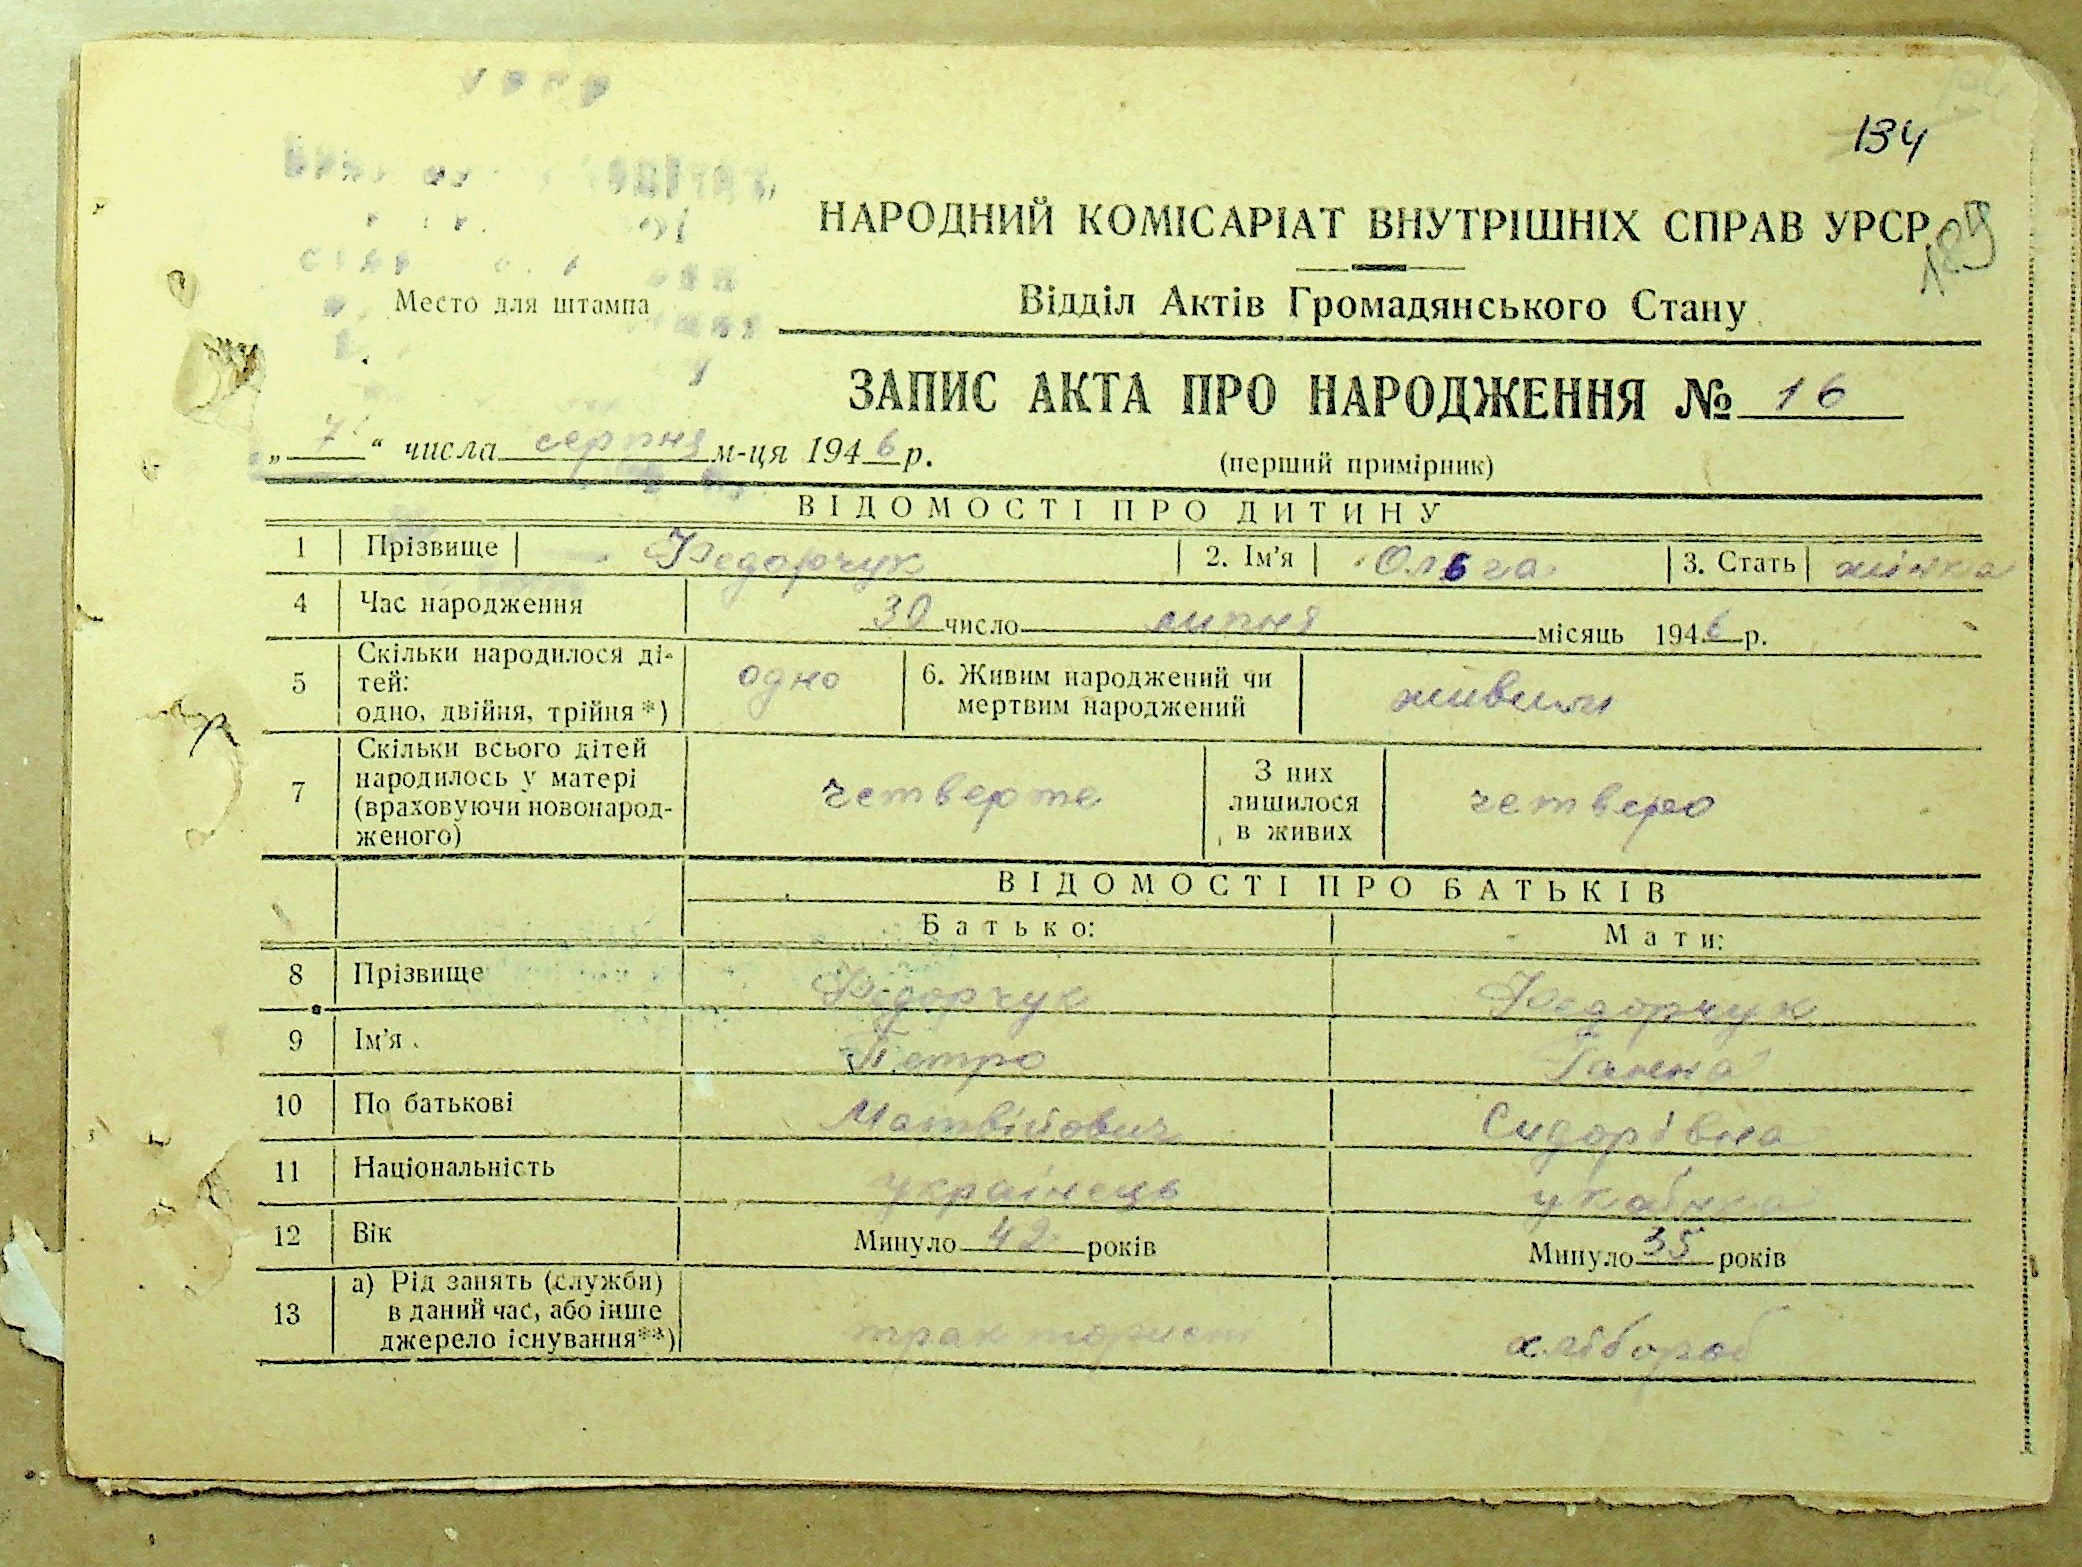 134
НАРОДНИЙ КОМІСАРІАТ ВНУТРІШНІХ СПРАВ УРСР
189
Відділ Актів Громадянського Стану
Место для штампа
ЗАПИС АКТА ПРО НАРОДЖЕННЯ № 16
„ 7 “ числа серпня м-ця 1946 р.
(перший примірник)
ВІДОМОСТІ ПРО ДИТИНУ
1 Прізвище Федорчук 2. Ім'я Ольга 3. Стать жінка
4 Час народження 30 число липня місяць 1946 р.
5 Скільки народилося ді-
тей:
одно, двійня, трійня*) одно 6. Живим народжений чи
мертвим народжений живим
7 Скільки всього дітей
народилось у матері
(враховуючи новонарод-
женого) четверте З них
лишилося
в живих четверо
ВІДОМОСТІ ПРО БАТЬКІВ
Батько: Мати:
8 Прізвище Федорчук Федорчук
9 Ім'я Петро Ганна
10 По батькові Матвійович Сидорівна
11 Національність українець укаінка
12 Вік Минуло 42 років Минуло 35 років
13 а) Рід занять (служби)
в даний час, або інше
джерело існування**) тракторист хлібороб